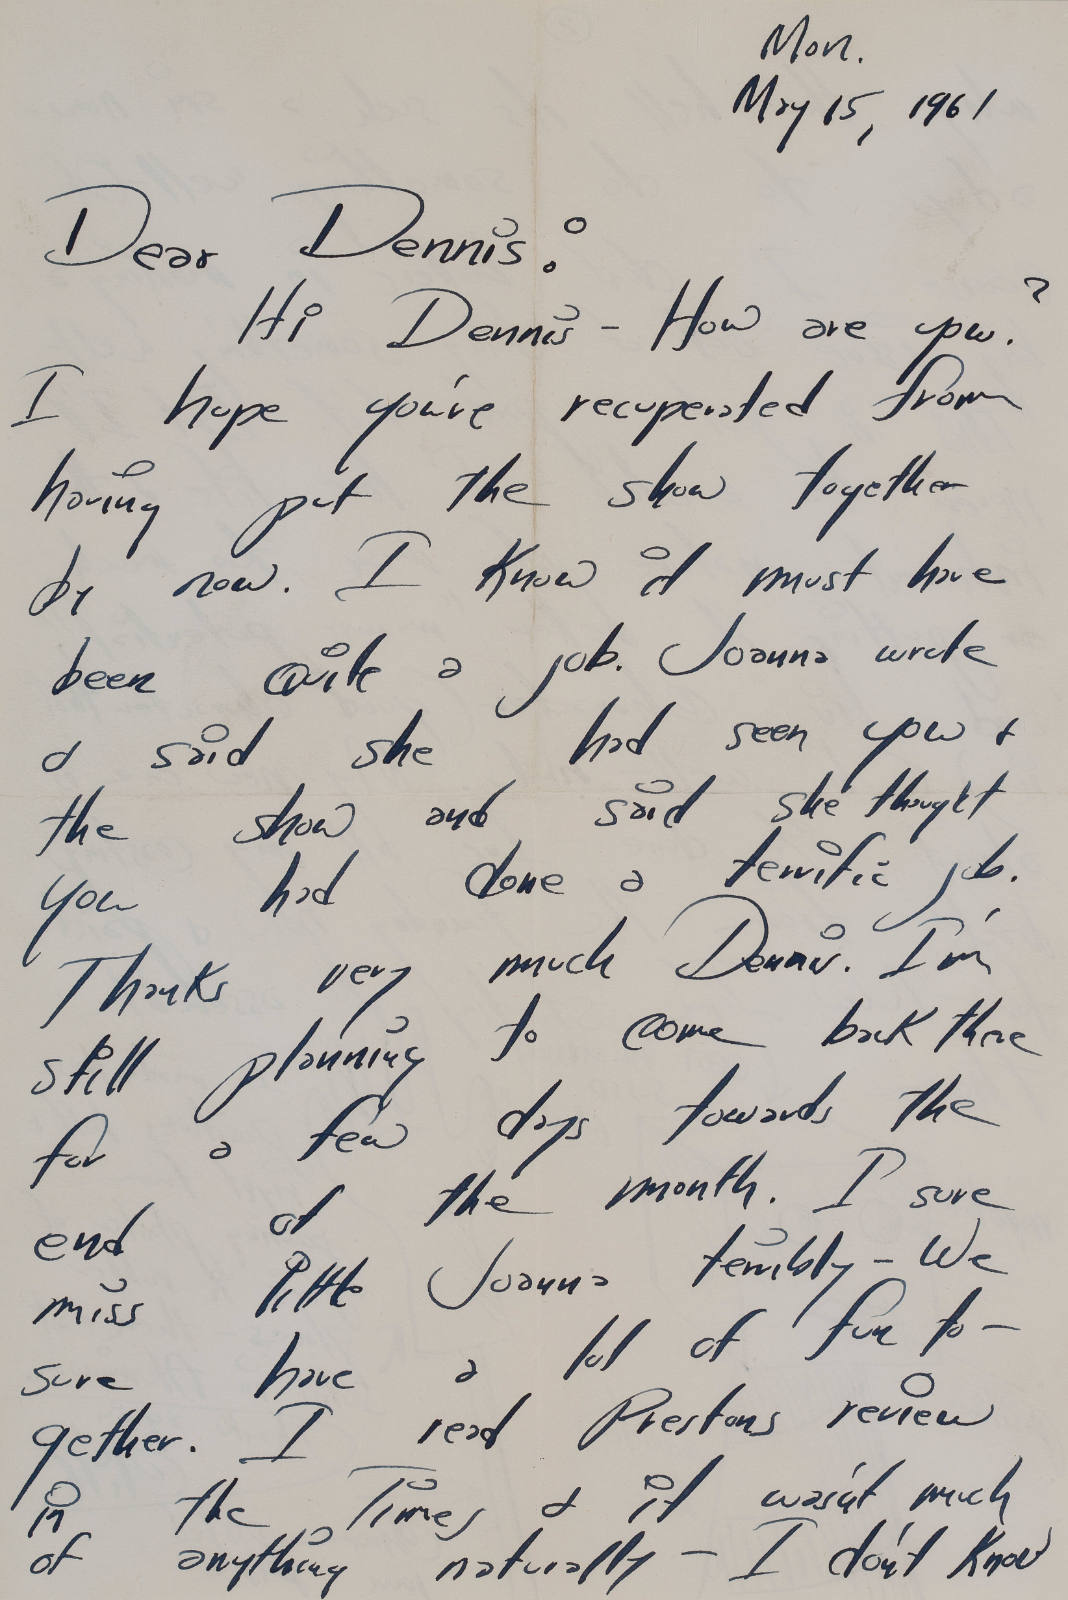 Mon.
May 15, 1961
Dear Dennis:
Hi Dennis - How are you?
I hope you've recuperated from
having put the show together
by now. I know it must have
been quite a job. Joanna wrote
& said she had seen you &
the show and said she thought
you had done a terrific job.
Thanks very much Dennis. I'm
still planning to come back there
for a few days towards the
end of the month. I sure
miss little Joanna terribly - We
sure have a lot of fun to-
gether. I read Prestons review
in the Times & it wasn't much
of anything naturally - I don't know